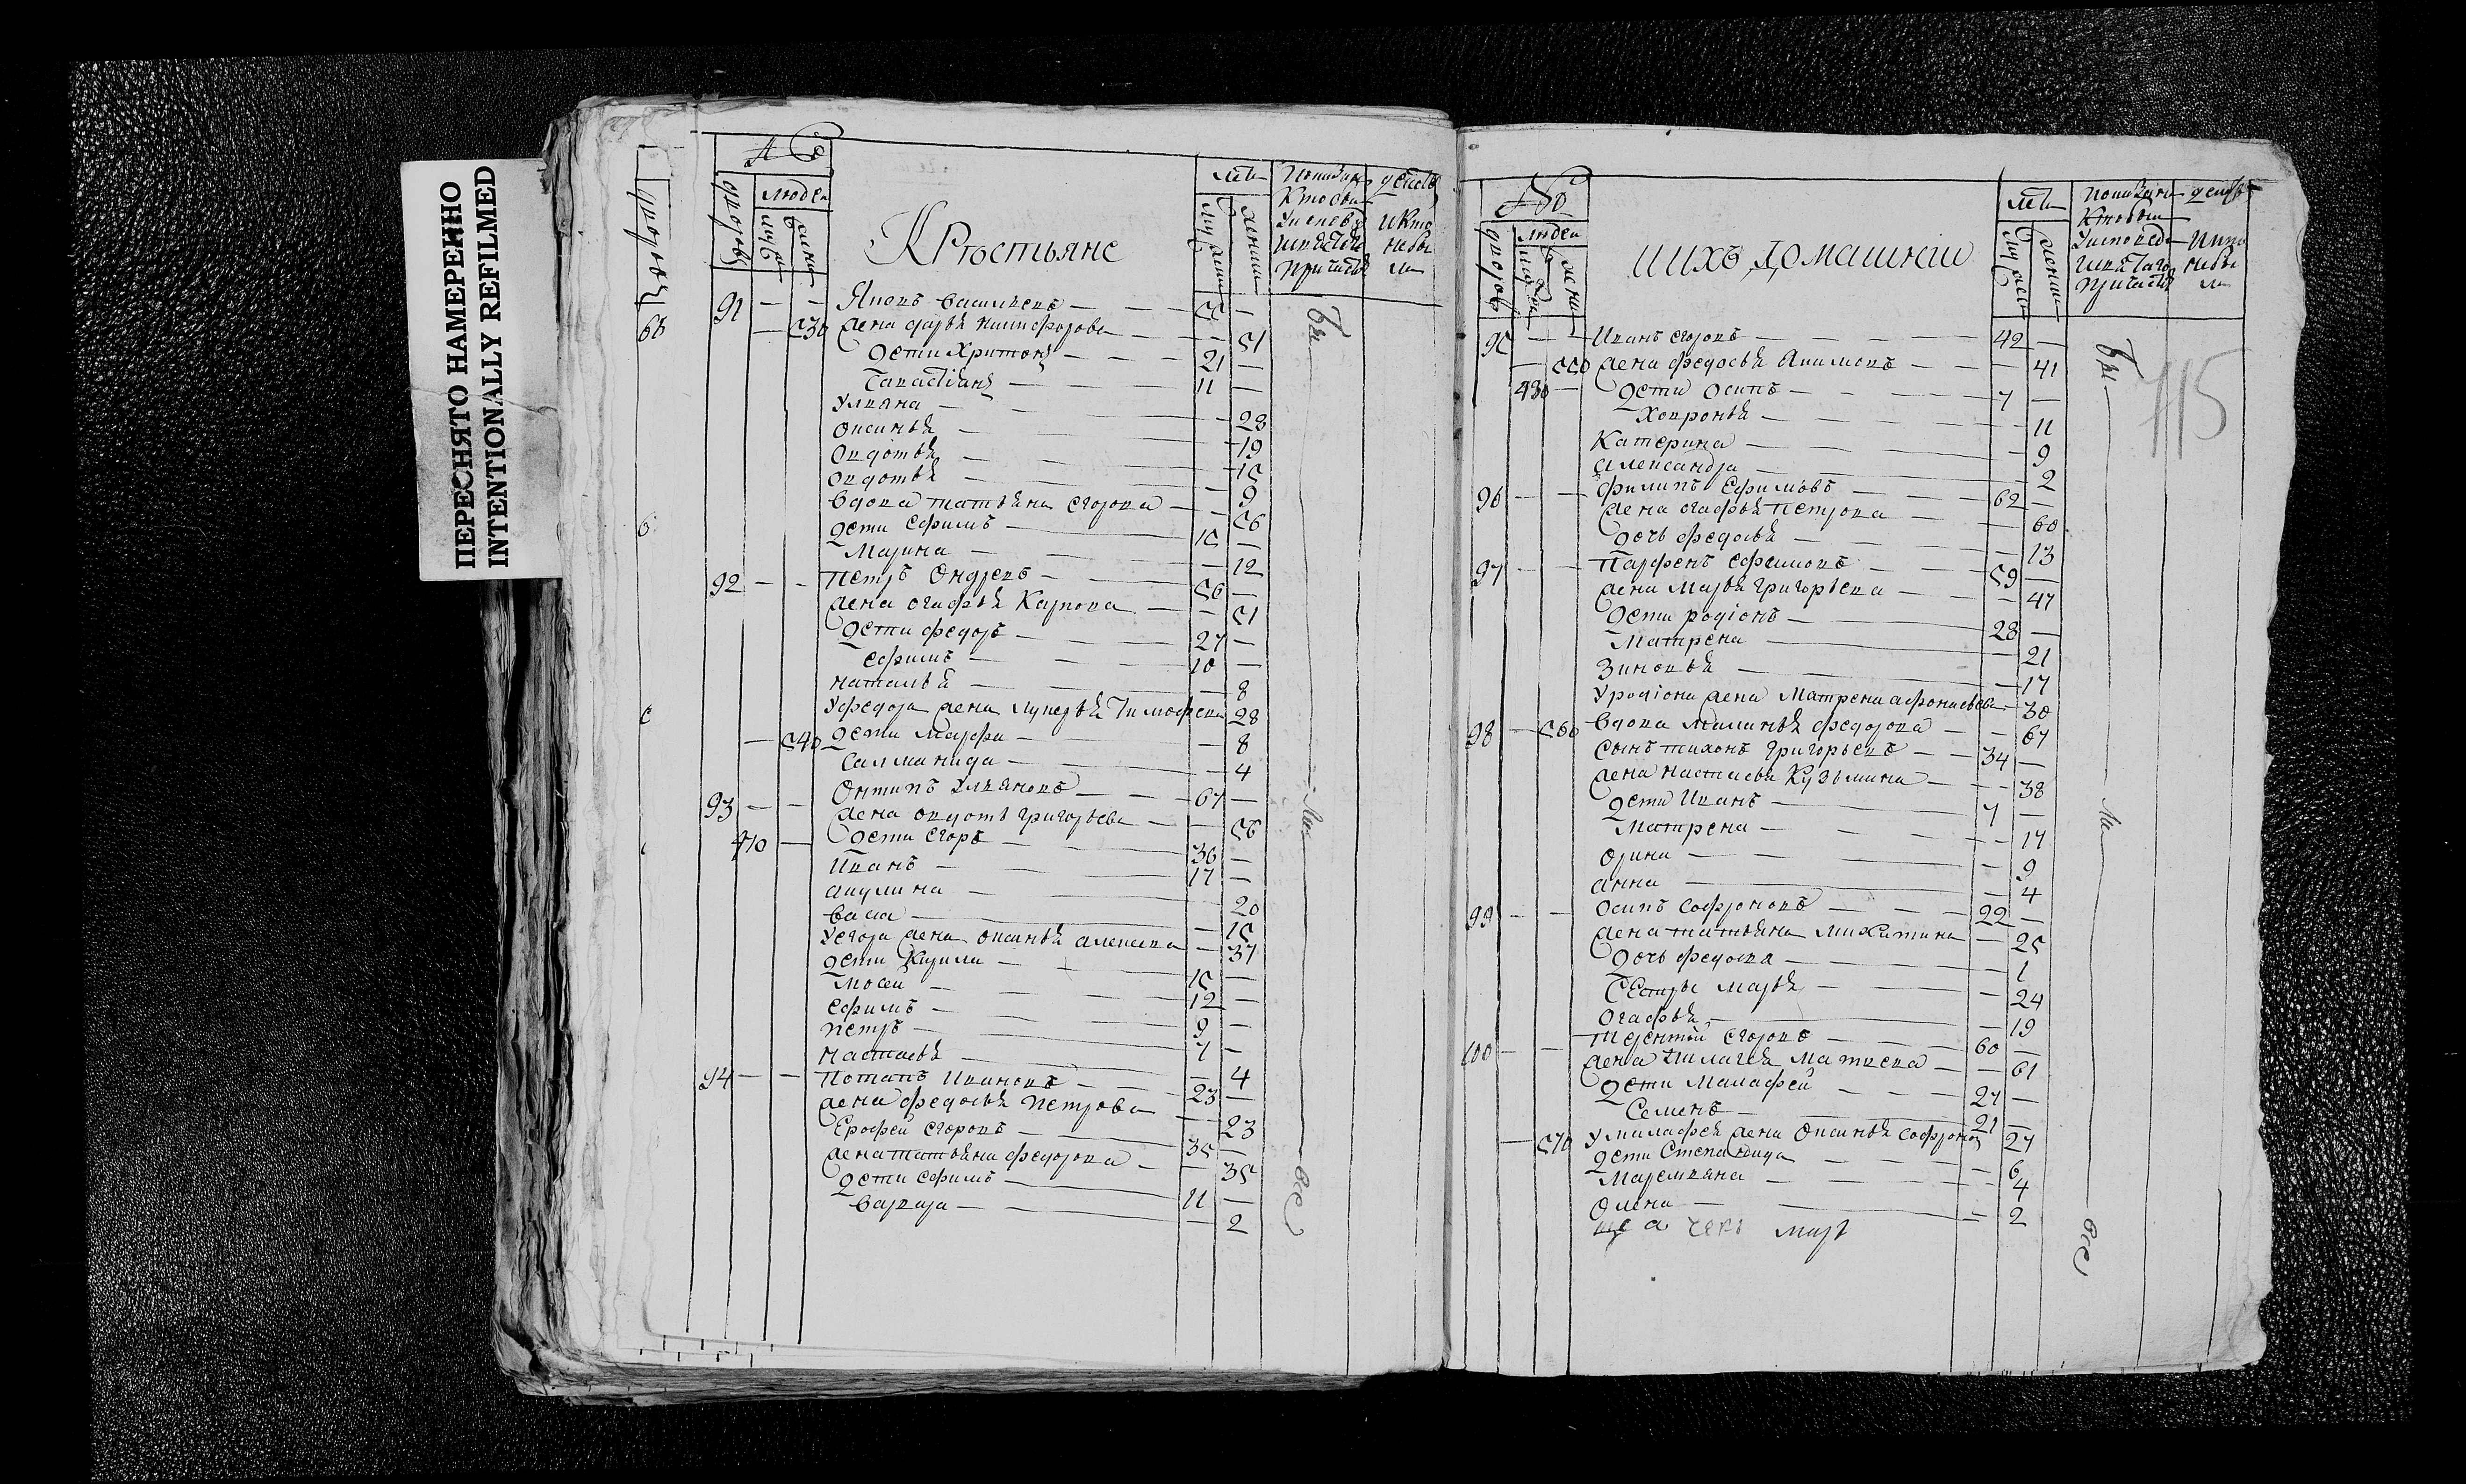 ПЕРЕСНЯТО НАМЕРЕННО
INTENTIONALLY REFILMED
№
людеи
Крестьяне
лѣта
91 Яковъ васильевъ 55
530 жена дарья никифорова 51
дети Харитонъ 21
Савастіанъ 11
Ульяна 23
оксинья 19
овдотья 15
овдотья 9
вдова татьяна егорова 56
дети ефимъ 15
Марина 12
92 петръ Ондревъ 56
жена огафья Карпова 51
дети федоръ 27
ефимъ 10
наталья 8
У федора жена лукерья Тимофеева 28
540 дети Марфа 8
Саламанида 4
93 Онтипъ Ульяновъ 67
жена овдотья григорьева 56
470 дети егоръ 36
Иванъ 17
акулина 20
васа 15
У егора жена оксинья алексеева 37
дети Кирила 15
Мосеи 12
ефимъ 9
петръ 7
настасья 4
94 Потапъ Ивановъ 23
жена федосья петрова 23
Ерофеи егоровъ 35
жена татьяна федорова 35
дети ефимъ 11
варвара 2
бы ли все
№
людеи
и ихъ домашніи
лѣта
715
95 Иванъ егоровъ 42
550 жена федосья Акимова 41
480 дети осипъ 7
Ховронья 11
Катерина 9
александра 2
96 филипъ Ефимовъ 62
жена огафья петрова 60
дочь федосья 13
97 Парфенъ ефимовъ 59
жена Марья григорьева 47
дети родіонъ 28
Матрена 21
Зиновья 17
У родіона жена Матрена афонасьева 30
98 560 вдова Маланья федорова 67
сынъ тихонъ григорьевъ 34
жена настасья Кузьмина 38
дети Иванъ 7
Матрена 17
орина 9
анна 4
99 осипъ софроновъ 22
жена татьяна Микитина 25
дочь федосья 1
Сестры марья 24
огафья 19
100 терентій егоровъ 60
жена Пилагея Матвеева 61
дети Малафеи 27
Семенъ 21
570 У малафея жена оксинья софронова 27
дети Степанида 6
Маремьяна 4
Олена 2
бы ли все